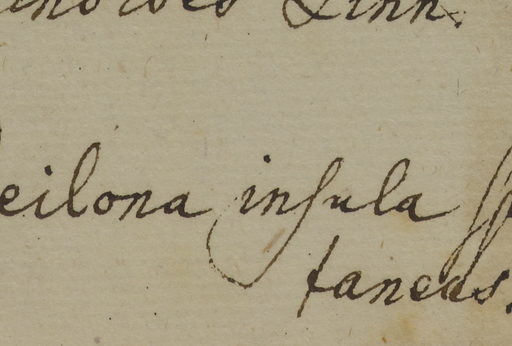 Linn.
eilona insula
taneas.